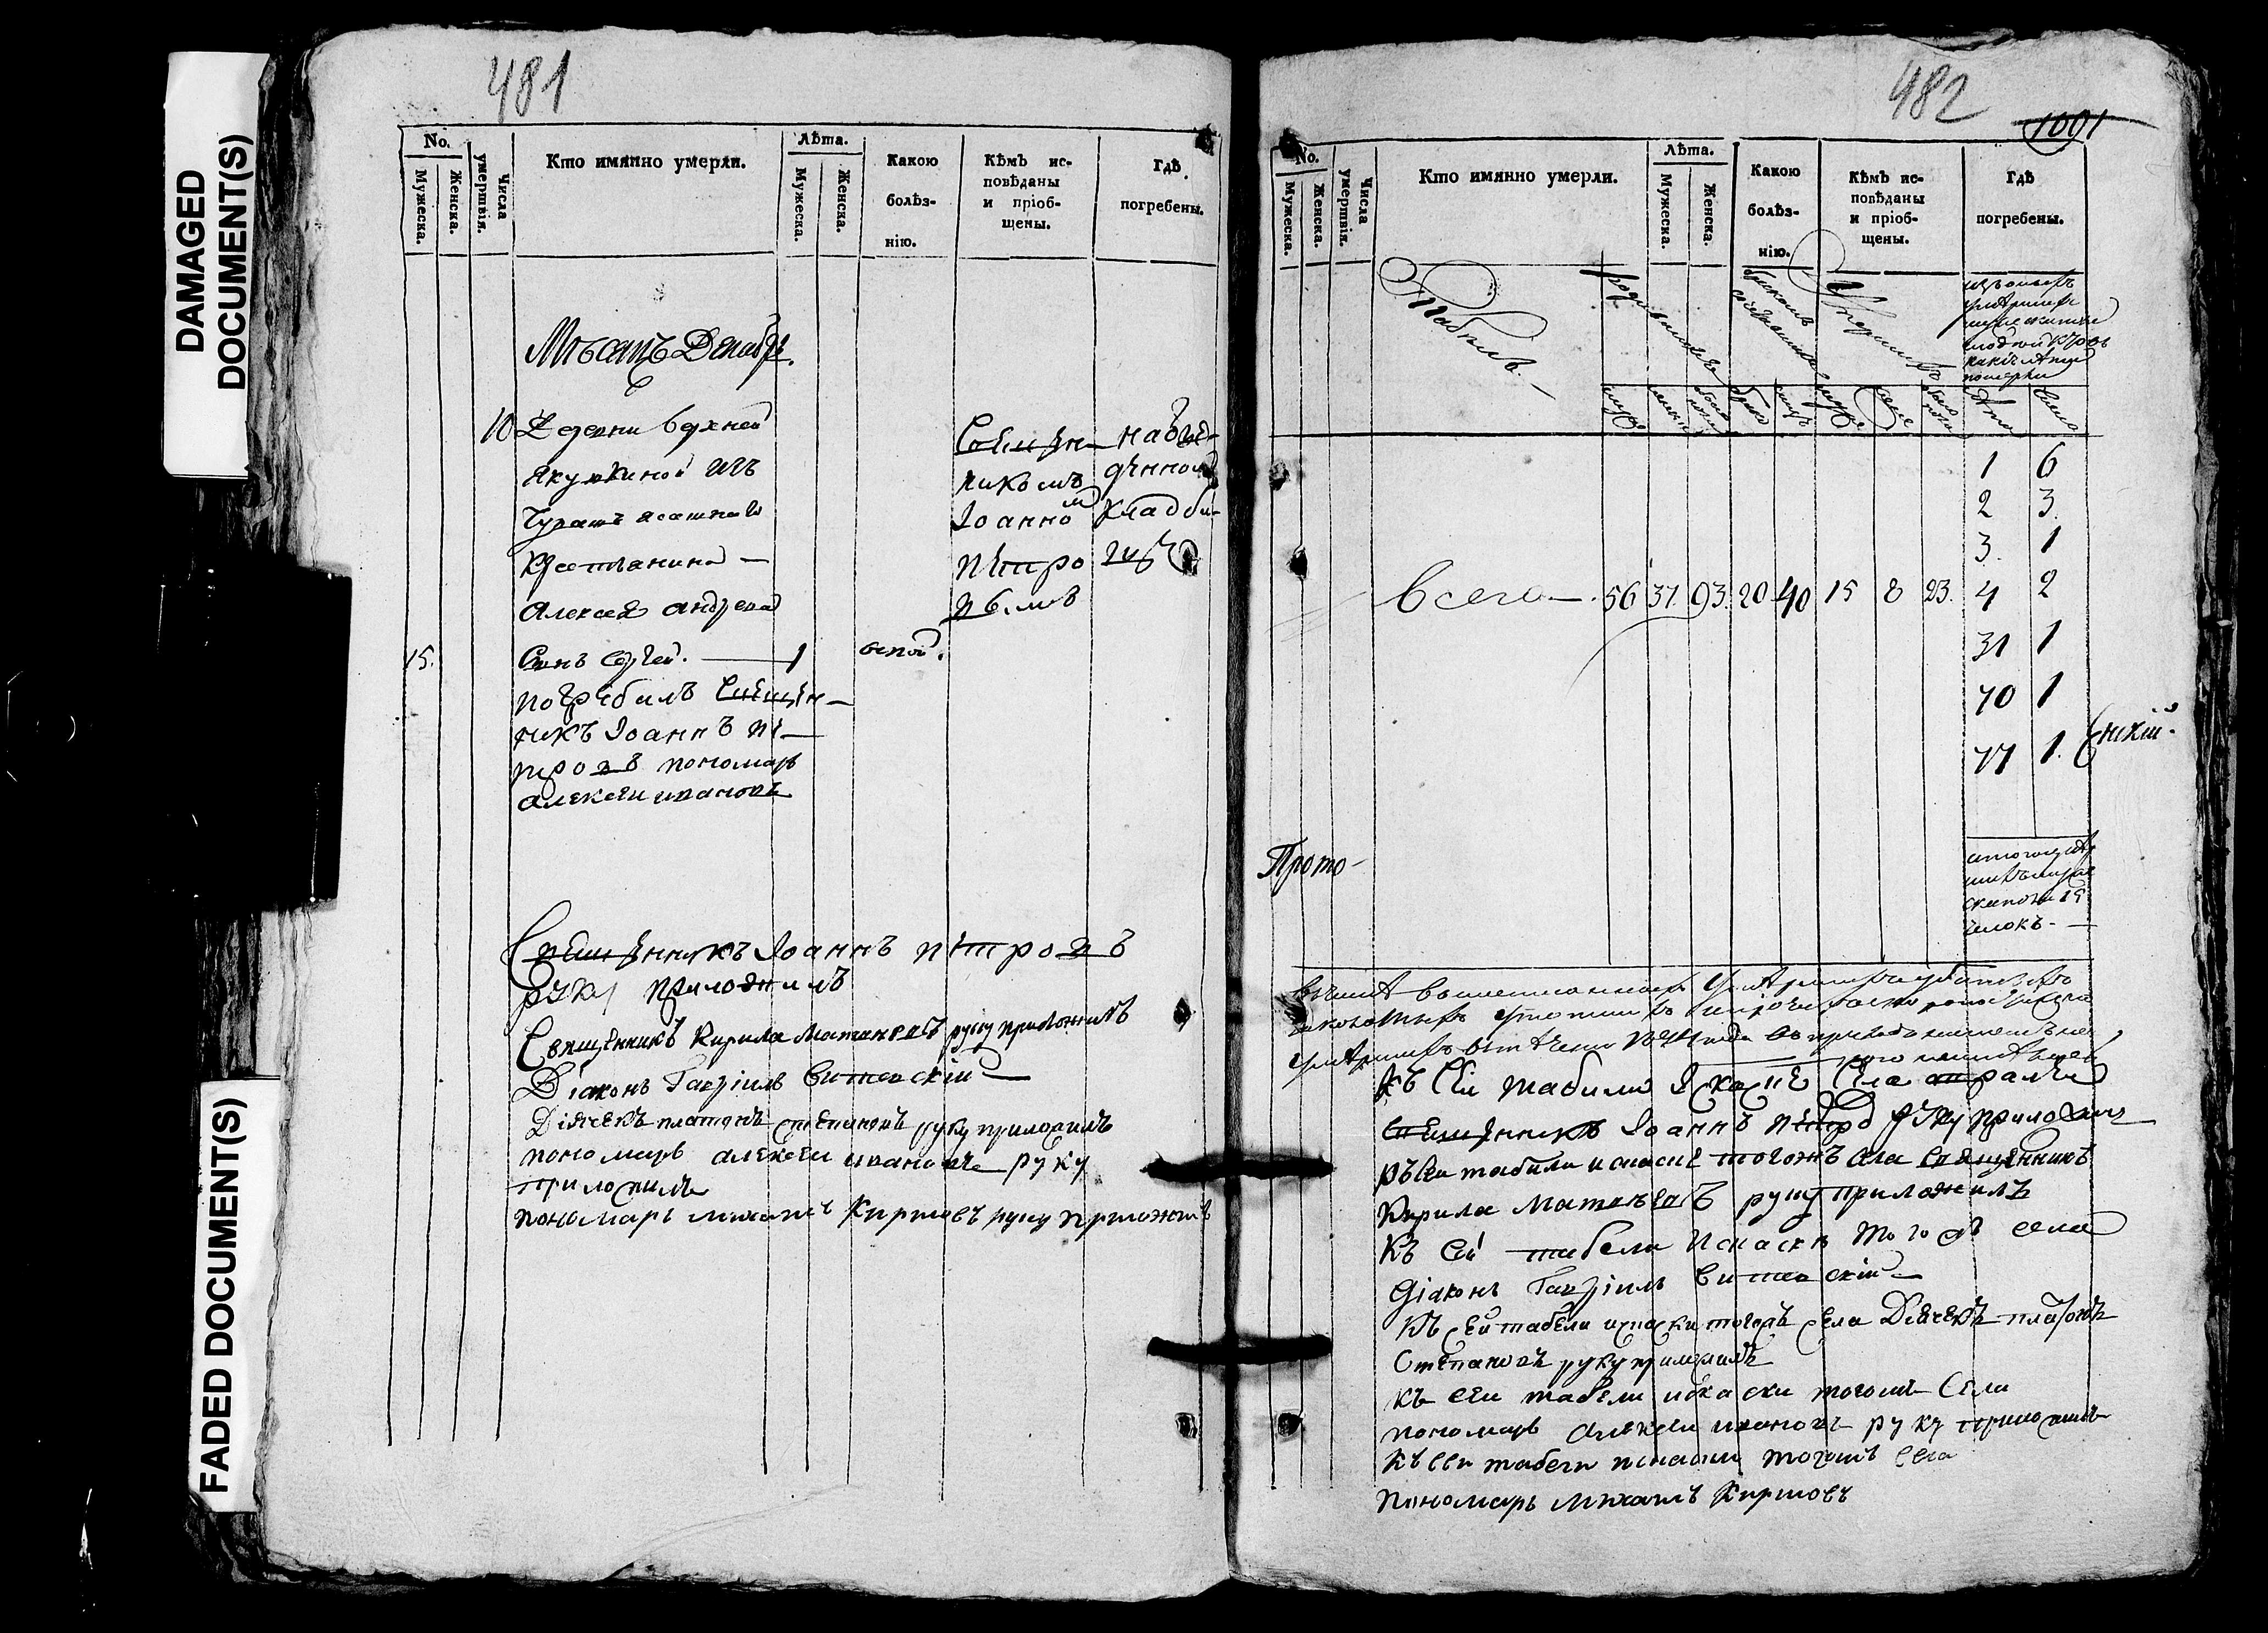 DAMAGED
DOCUMENT(S)
FADED DOCUMENT(S)
481
No.
Мужеска.
Женска.
Числа умертвія.
Кто имянно умерли.
Лѣта.
Мужеска.
Женска.
Какою
болѣз-
нію.
Кѣмъ ис-
повѣданы
и пріоб-
щены.
Гдѣ
погребены.
Мѣсацъ Декабрь.
10 Деревни верхней
Якушкиной изъ
Чувашъ ясашнаго
Крестьянина —
Алексея андреева
15. Сынъ сергей. — 1 оспой.
Священ-
никомъ
Іоанномъ
петро
вымъ
на отве-
денномъ
кладби-
щѣ
погребалъ священ-
никъ Іоаннъ пе-
тровъ пономарь
алексеи ивановъ
Священникъ Іоаннъ петровъ
руку приложилъ
Священникъ Кирила Матвеевъ руку приложилъ
Діаконъ Гавріилъ Витевскій
Діячекъ платонъ степановъ руку приложилъ
пономарь алексеи ивановъ руку
приложилъ
пономарь михаилъ Кириловъ руку приложилъ
482
1001
No.
Мужеска.
Женска.
Числа умертвія.
Кто имянно умерли.
Лѣта.
Мужеска.
Женска.
Какою
болѣз-
нію.
Кѣмъ ис-
повѣданы
и пріоб-
щены.
Гдѣ
погребены.
Табель.
родившихся
бракомъ сочетавшихся
Умершихъ
померли
лѣта
число
1 6
2 3
3. 1
4 2
31 1
70 1
77 1.
Всего — 56 37. 93. 20 40 15 8 23.
Снскій.
Прото-
мужеска пола 15
челокъ. —
Къ сей табели
Священникъ Іоаннъ петро руку приложилъ
къ сеи табели и сказке тогожъ села священникъ
Кирила Матвеевъ руку приложилъ
Къ сей табели и сказке тогожъ села
діаконъ Гавріилъ Витевскій
Къ сеи табели и сказки тогожъ села Діячекъ платонъ
Степановъ руку приложилъ
Къ сеи табели и сказки тогожъ села
пономарь алексеи ивановъ руку приложилъ
Къ сеи табели и сказки тогожъ села
пономарь михаилъ Кириловъ